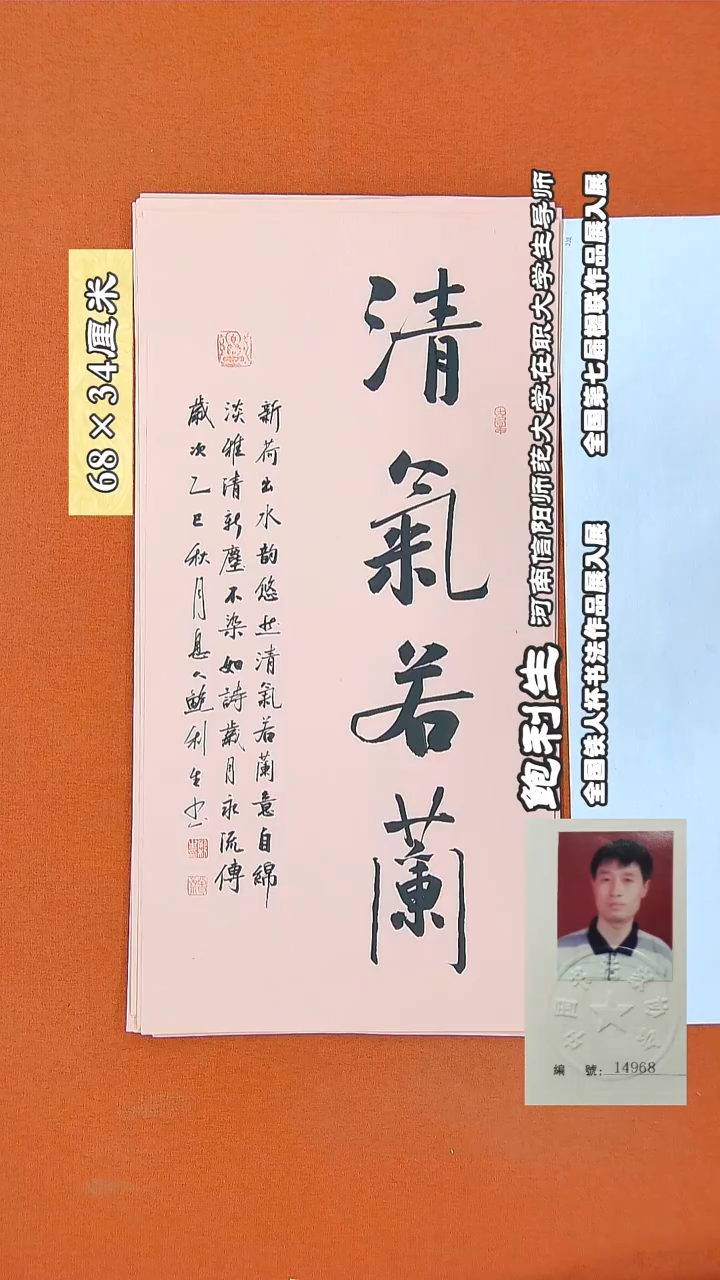 清氣若蘭
新荷出水韵悠然清氣若蘭意自綿
淡雅清新塵不染如詩歲月永流傳
歲次乙巳秋月息人鮑利生书
68×34厘米
鲍利生 河南信阳师范大学在职大学生导师
全国铁人杯书法作品展入展 全国第七届楹联作品展入展
編 號: 14968